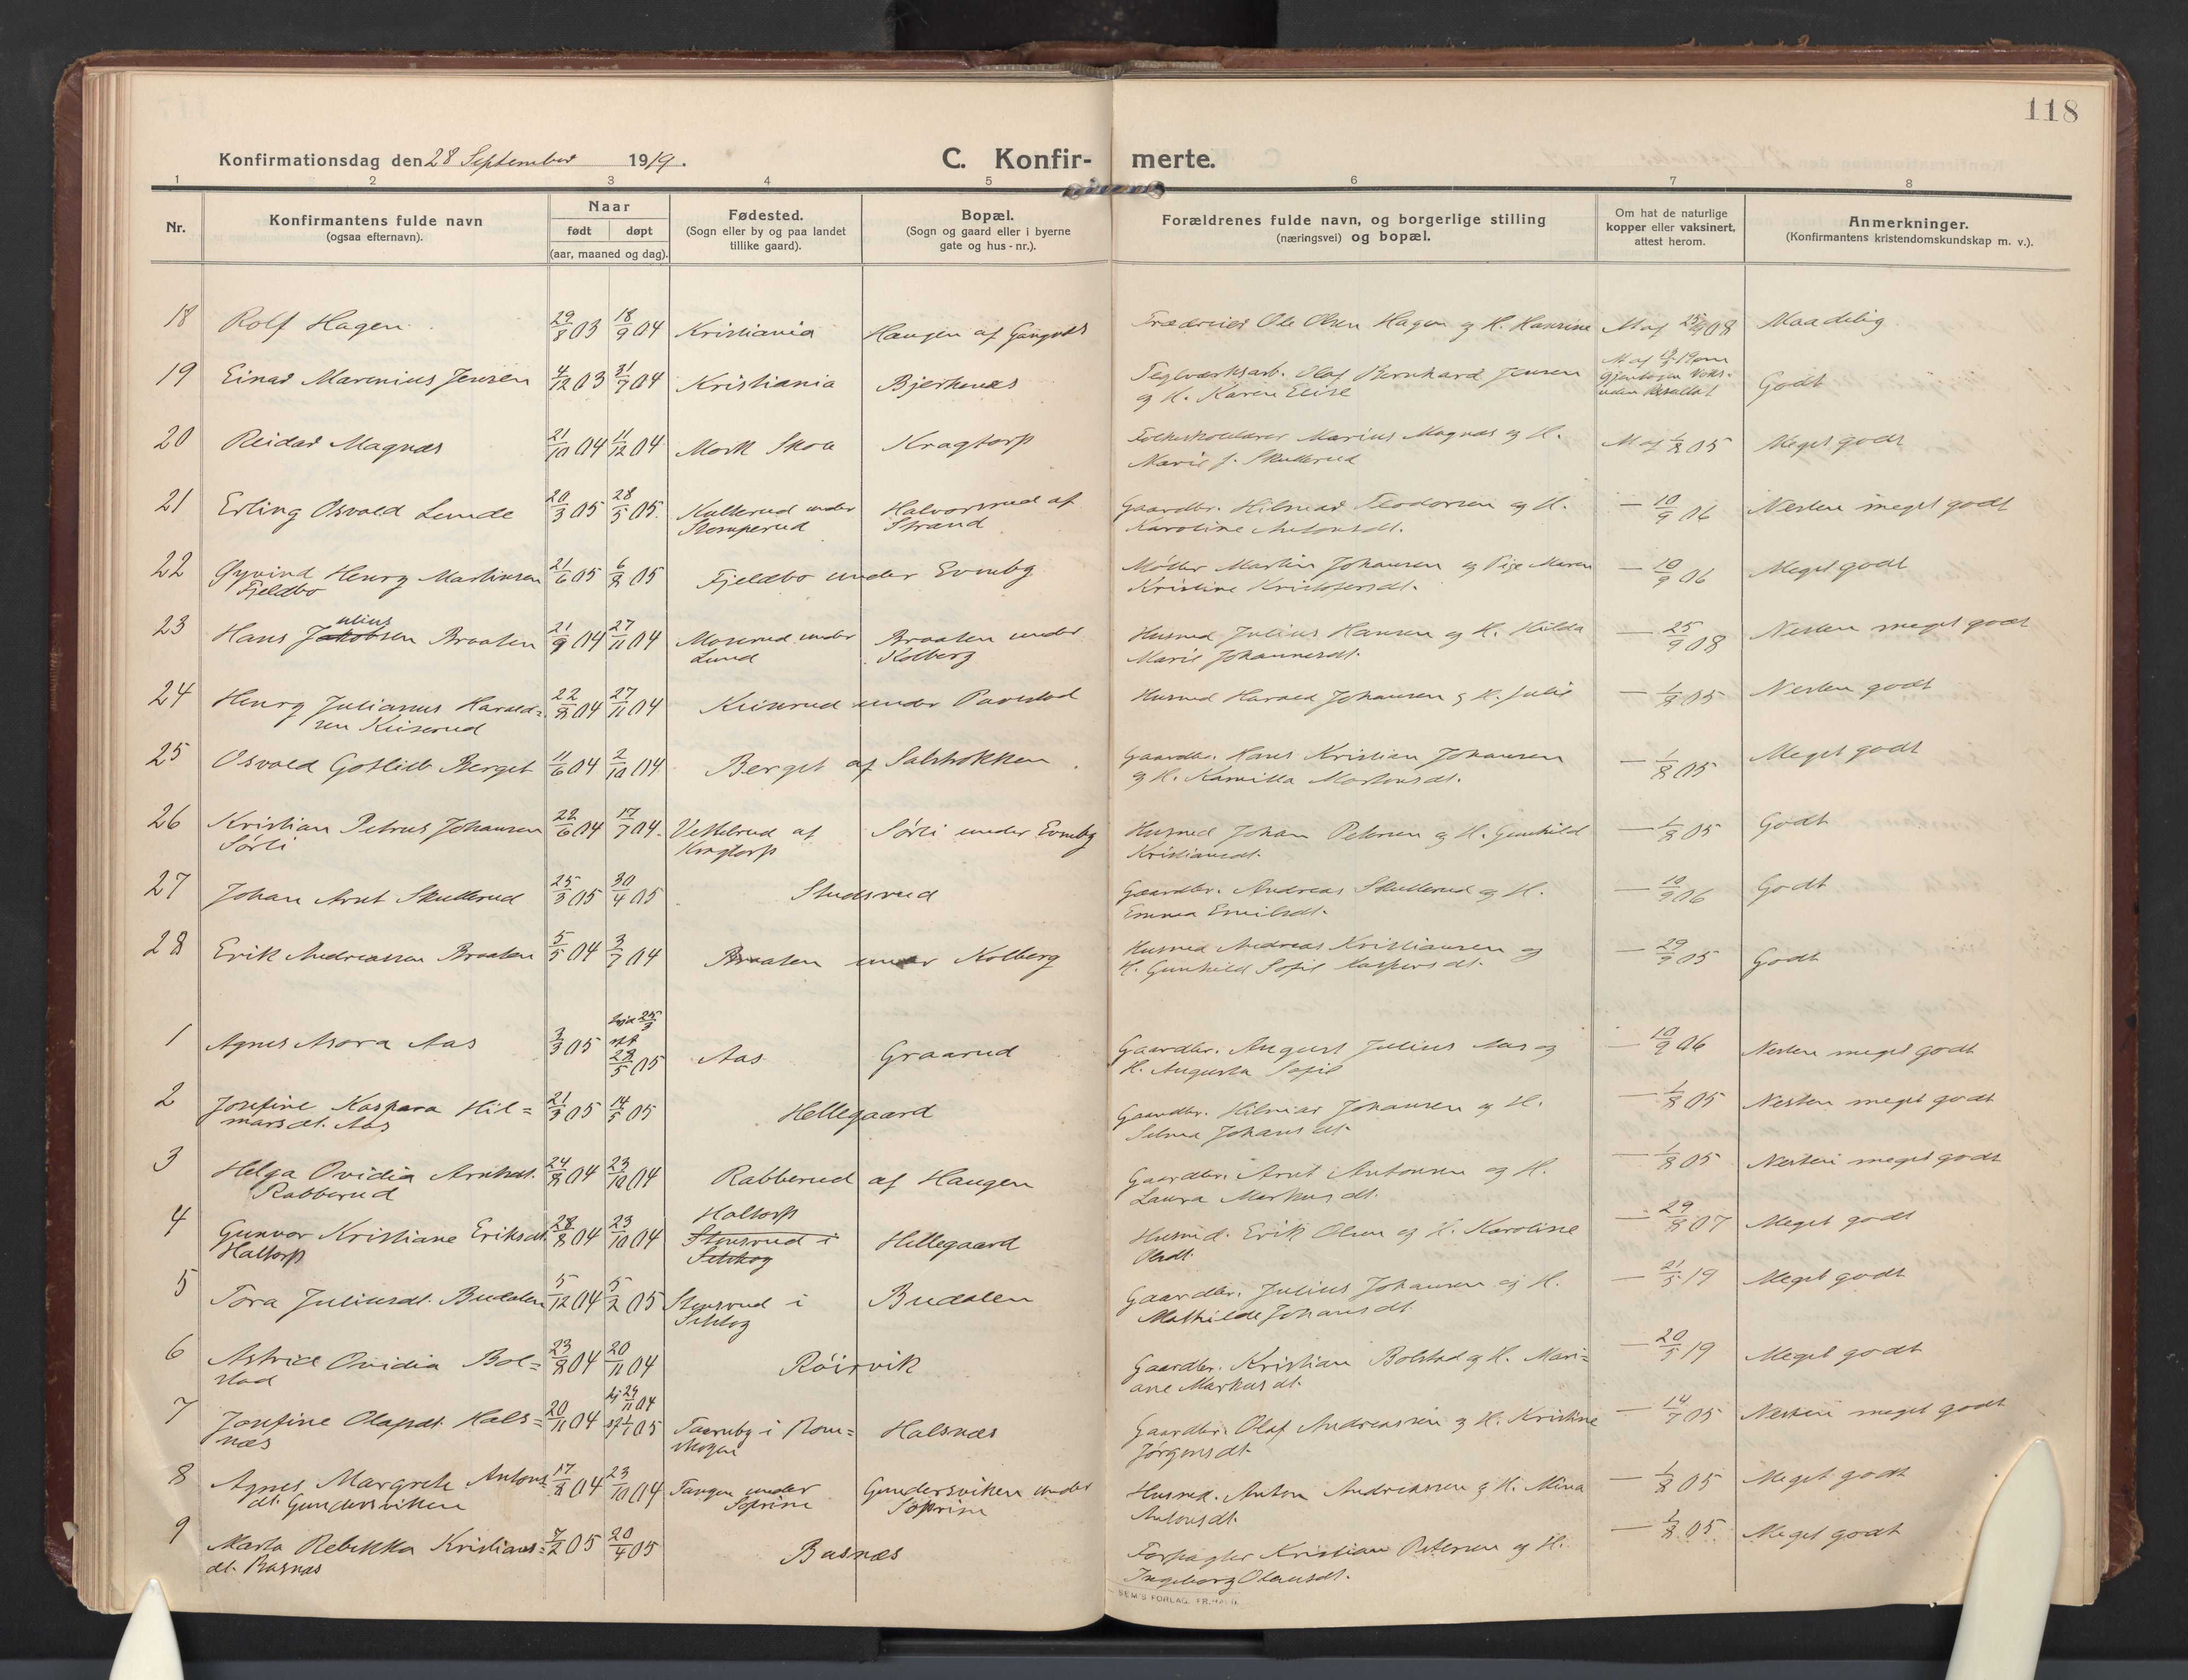 118
Konfirmationsdag den 28 September 1919.
C. Konfir- merte.
1 2 3 4 5 6 7 8
Nr.
Konfirmantens fulde navn
(ogsaa efternavn).
Naar
født døpt
(aar, maaned og dag).
Fødested.
(Sogn eller by og paa landet
tillike gaard).
Bopæl.
(Sogn og gaard eller i byerne
gate og hus-nr.).
Forældrenes fulde navn, og borgerlige stilling
(næringsvei) og bopæl.
Om hat de naturlige
kopper eller vaksinert,
attest herom.
Anmerkninger.
(Konfirmantens kristendomskundskap m. v.).
18 Rolf Hagen 29/8 03 18/9 04 Kristiania Haugen af Ole Olsen Hagen og H. 08 Maadelig
19 Einar Marenius Jensen 4/12 03 31/7 04 Kristiania Bjerkenæs Teglværksarb. Olaf Bernhard Jensen
og H. Karen Elise
uden Resultat Godt
20 Reidar Magnæs 21/10 04 11/12 04 Mork Skole Kragtorp Folkeskolelærer Marius Magnæs og H. M af 1/8 05 Meget godt
Marie f. Skullerud
21 Erling Osvald Lunde 20/3 05 28/5 05 Kullerud under Halvorsrud af Gaardbr. Hilmar Teodorsen og H. — 10/9 06 Nesten meget godt
Stomperud Strand Karoline Antonsdt.
22 Øyvind Henry Martinsen 21/6 05 6/8 05 Fjeldbo under Evenby Møller Martin Johansen og Pige Maren — 10/9 06 Meget godt
Fjeldbo Kristine Kristofersdt.
23 Hans Jakobsen ulius Braaten 21/9 04 27/11 04 Moserud under Braaten under Husmd Julius Hansen og H. Hilda — 25/9 08 Nesten meget godt
Lund Kolberg Marie Johannesdt.
24 Henry Julianus Harald= 22/8 04 27/11 04 Keiserud under Husmd Harald Johansen og H. Julie — 1/8 05 Nesten godt
sen Keiserud
25 Osvald Gotlieb Berget 11/6 04 2/10 04 Berget af Gaardbr. Hans Kristian Johansen — 1/8 05 Meget godt
og H. Kamilla Martinsdt.
26 Kristian Petrus Johansen 22/6 04 17/7 04 Vestelrud af Sørli under Evenby Husmd Johan Petersen og H. Gunhild — 1/8 05 Godt
Sørli Kragtorp Kristiansdt.
27 Johan Arnt Skullerud 25/3 05 30/4 05 Studsrud Gaardbr. Andreas Skullerud og H. — 10/9 06 Godt
Emma Emilsdt.
28 Erik Andreassen Braaten 5/5 04 3/7 04 Braaten under Kolberg Husmd Andreas Kristiansen og — 29/9 05 Godt
H. Gunhild Sofie Kaspersdt.
1 Agnes Asora Aas 3/3 05 28/5 05 Aas Graarud Gaardbr. August Julius Aas og — 10/9 06 Nesten meget godt
H. Augusta Sofie
2 Josefine Kaspara Hil= 21/3 05 14/5 05 Hellegaard Gaardbr. Hilmar Johansen og H. — 1/8 05 Nesten meget godt
marsdt. Aas Selma Johansdt.
3 Helga Ovidia Arntsdt. 24/8 04 23/10 04 Rabberud af Haugen Gaardbr. Arnt Antonsen og H. — 1/8 05 Nesten meget godt
Rabberud Laura Markusdt.
4 Gunvor Kristiane Eriksdt. 28/8 04 23/10 04 Haltorp Hellegaard Husmd. Erik Olsen og H. Karoline — 29/8 07 Meget godt
Haltorp Stensrud i Setskog Olsdt.
5 Tora Juliusdt. Budalen 5/12 04 5/2 05 Stensrud i Budalen Gaardbr. Julius Johansen og H. — 21/5 19 Meget godt
Setskog Mathilde Johansdt.
6 Astrid Ovidia Bol= 23/8 04 20/11 04 Röirvik Gaardbr. Kristian Bolstad og H. Mari= — 20/5 19 Meget godt
stad ane Markusdt.
7 Josefine Olafsdt. Hals= 20/11 04 hj 29/11 04 Taarnby i Rom= Halsnæs Gaardbr. Olaf Andreassen og H. Kristine — 14/7 05 Nesten meget godt
næs 05 skogen Jørgensdt.
8 Agnes Margrete Antons 17/8 04 23/10 04 Tangen under Gundersviken under Husmd. Anton Andreassen og H. Mina — 1/8 05 Meget godt
dt. Gundersviken Søprim Søprim Antonsdt.
9 Marta Rebekka Kristians= 7/2 05 20/4 05 Basnæs Forpagter Kristian Petersen og H. — 1/8 05 Meget godt
dt. Basnæs Ingeborg Olausdt.
SEM'S FORLAG, FR.HALD.